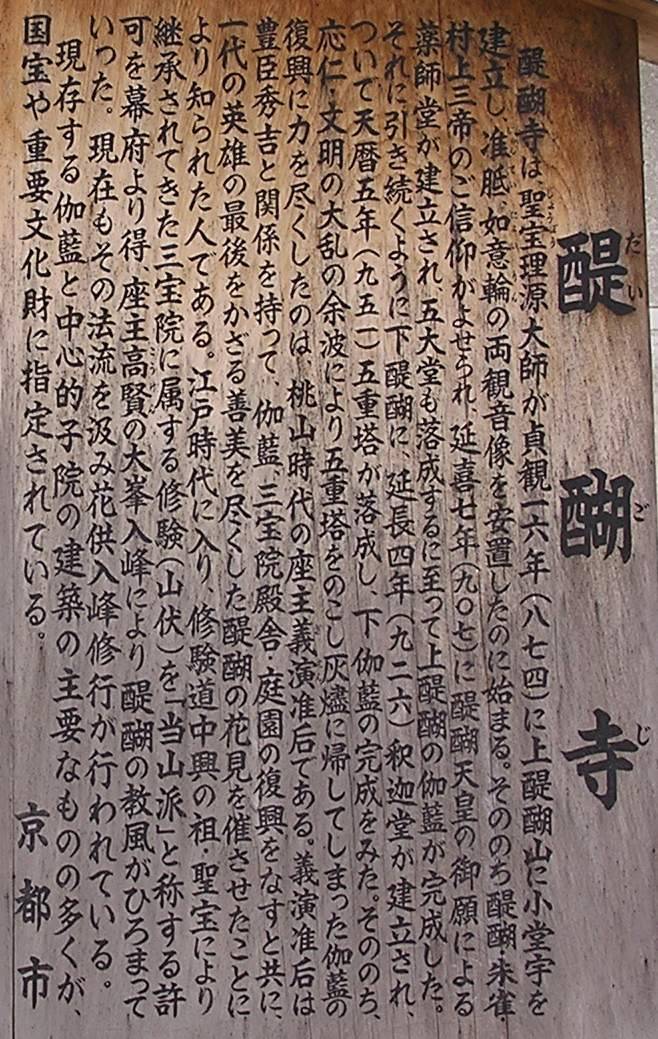 醍醐寺
だいごじ
醍醐寺は、聖宝理源大師が貞観一六年(八七四)に上醍醐山に小堂宇を
建立し、准胝・如意輪の両観音像を安置したのに始まる。そののち醍醐・朱雀・
村上三帝のご信仰がよせられ、延喜七年(九〇七)に醍醐天皇の御願による
薬師堂が建立され、五大堂も落成するに至って上醍醐の伽藍が完成した。
それに引き続くように下醍醐に、延長四年(九二六)釈迦堂が建立され、
ついで天暦五年(九五一)五重塔が落成し、下伽藍の完成をみた。そののち、
応仁・文明の大乱の余波により五重塔をのこし灰燼に帰してしまった伽藍の
復興に力を尽くしたのは、桃山時代の座主義演准后である。義演准后は
豊臣秀吉と関係を持って、伽藍、三宝院殿舎・庭園の復興をなすと共に、
一代の英雄の最後をかざる善美を尽くした醍醐の花見を催させたことに
より知られた人である。江戸時代に入り、修験道中興の祖・聖宝により
継承されてきた三宝院に属する修験(山伏)を「当山派」と称する許
可を幕府より得、座主高賢の大峯入峰により醍醐の教風がひろまって
いった。現在もその法流を汲み花供入峰修行が行われている。
現存する伽藍と中心的子院の建築の主要なものの多くが、
国宝や重要文化財に指定されている。
京都市